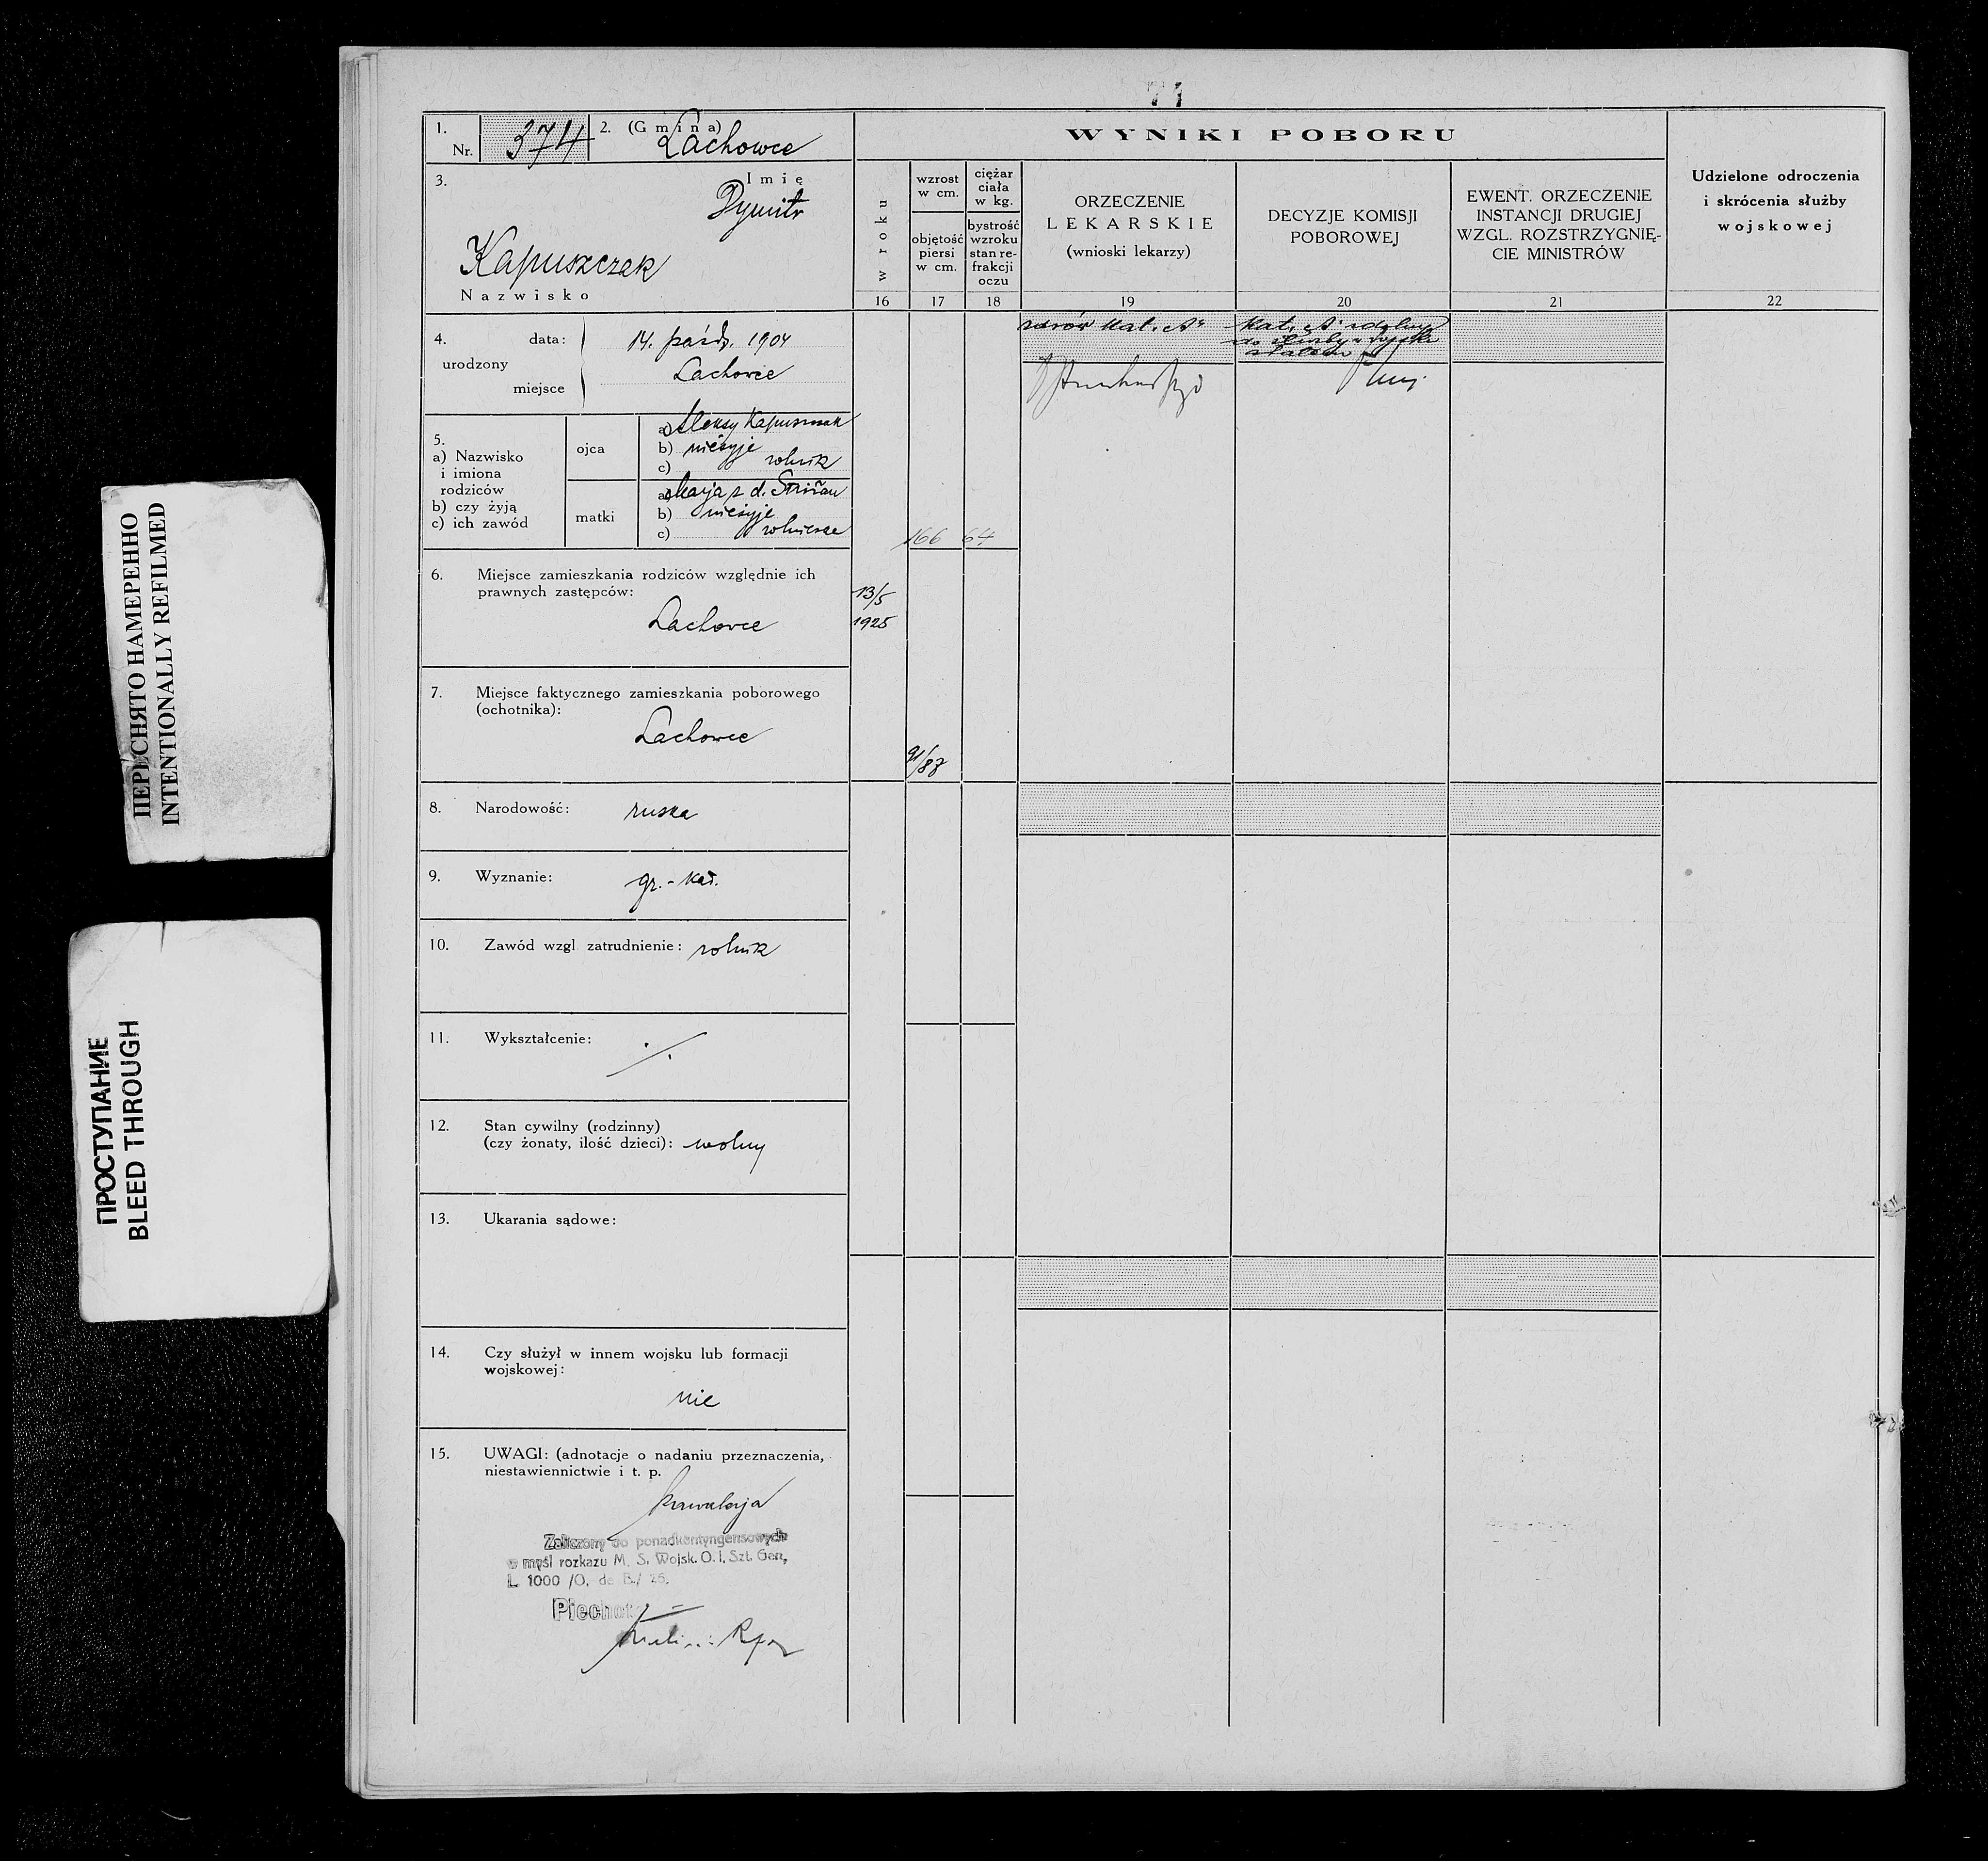 71
1.
Nr. 374
2. (Gmina)
Lachowce
3.
Imię
Dymitr
Kapuszczak
Nazwisko
WYNIKI POBORU
w roku
wzrost
w cm.
objętość
piersi
w cm.
ciężar
ciała
w kg.
bystrość
wzroku
stan re-
frakcji
oczu
ORZECZENIE
LEKARSKIE
(wnioski lekarzy)
DECYZJE KOMISJI
POBOROWEJ
EWENT. ORZECZENIE
INSTANCJI DRUGIEJ
WZGL. ROZSTRZYGNIĘ-
CIE MINISTRÓW
Udzielone odroczenia
i skrócenia służby
wojskowej
16 17 18 19 20 21 22
4.
urodzony
data: 14. paźdz. 1904
miejsce Lachowce
zdrów Kat. "A"
Kat. "A" zdolny
do służby w wojsku
stałem
5.
a) Nazwisko
i imiona
rodziców
b) czy żyją
c) ich zawód
ojca
a) Aleksy Kapuszczak
b) nieżyje
c) rolnik
matki
a) Marja z d.
b) nieżyje
c)
166 64
6. Miejsce zamieszkania rodziców względnie ich
prawnych zastępców:
Lachowce
13/5
1925
7. Miejsce faktycznego zamieszkania poborowego
(ochotnika):
Lachowce
91/83
8. Narodowość: ruska
9. Wyznanie: gr.-kat.
10. Zawód wzgl zatrudnienie: rolnik
11. Wykształcenie: ./.
12. Stan cywilny (rodzinny)
(czy żonaty, ilość dzieci): wolny
13. Ukarania sądowe:
14. Czy służył w innem wojsku lub formacji
wojskowej:
nie
15. UWAGI: (adnotacje o nadaniu przeznaczenia,
niestawiennictwie i t. p.
kawalerja
Zaliczony do ponadkontyngensowych
w myśl rozkazu M. S. Wojsk. O. I, Szt. Gen,
L. 1000 /O. de B./ 25.
Piechota
ПЕРЕСНЯТО НАМЕРЕННО
INTENTIONALLY REFILMED
ПРОСТУПАНИЕ
BLEED THROUGH